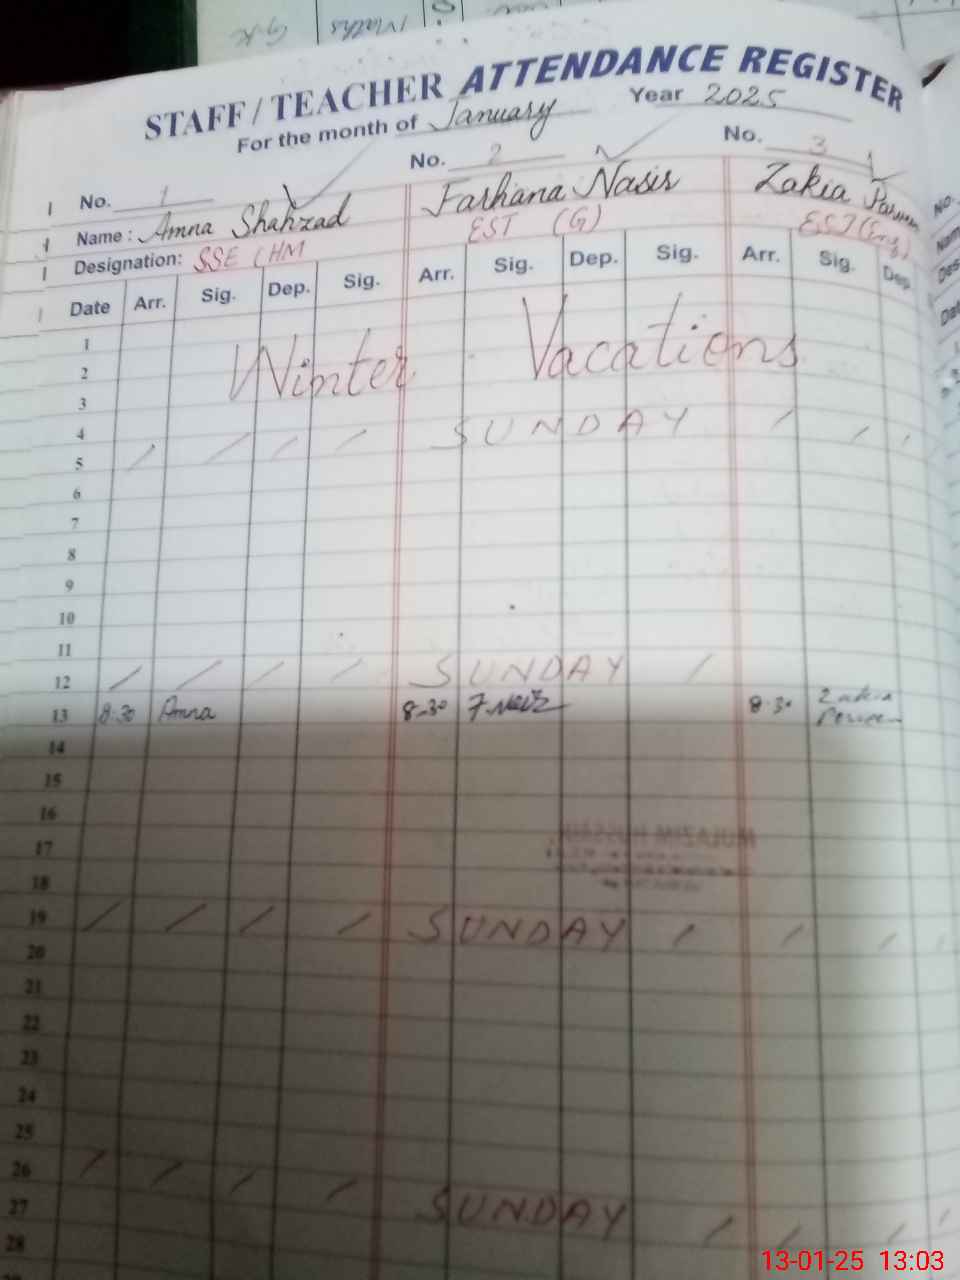 G.K Maths
STAFF / TEACHER ATTENDANCE REGISTER
For the month of January Year 2025
No. 1 No. 2 No. 3
Name : Amna Shahzad Farhana Nasir Zakia Parveen
Designation: SSE (HM EST (G) EST (Eng)
Date Arr. Sig. Dep. Sig. Arr. Sig. Dep. Sig. Arr. Sig. Dep.
1
2 Winter Vacations
3
4 SUNDAY
5
6
7
8
9
10
11
12 SUNDAY
13 8.30 Amna 8-30 8.30 Zakia Perveen
14
15
16
17
18
19 SUNDAY
20
21
22
23
24
25
26
27 SUNDAY
28
13-01-25 13:03